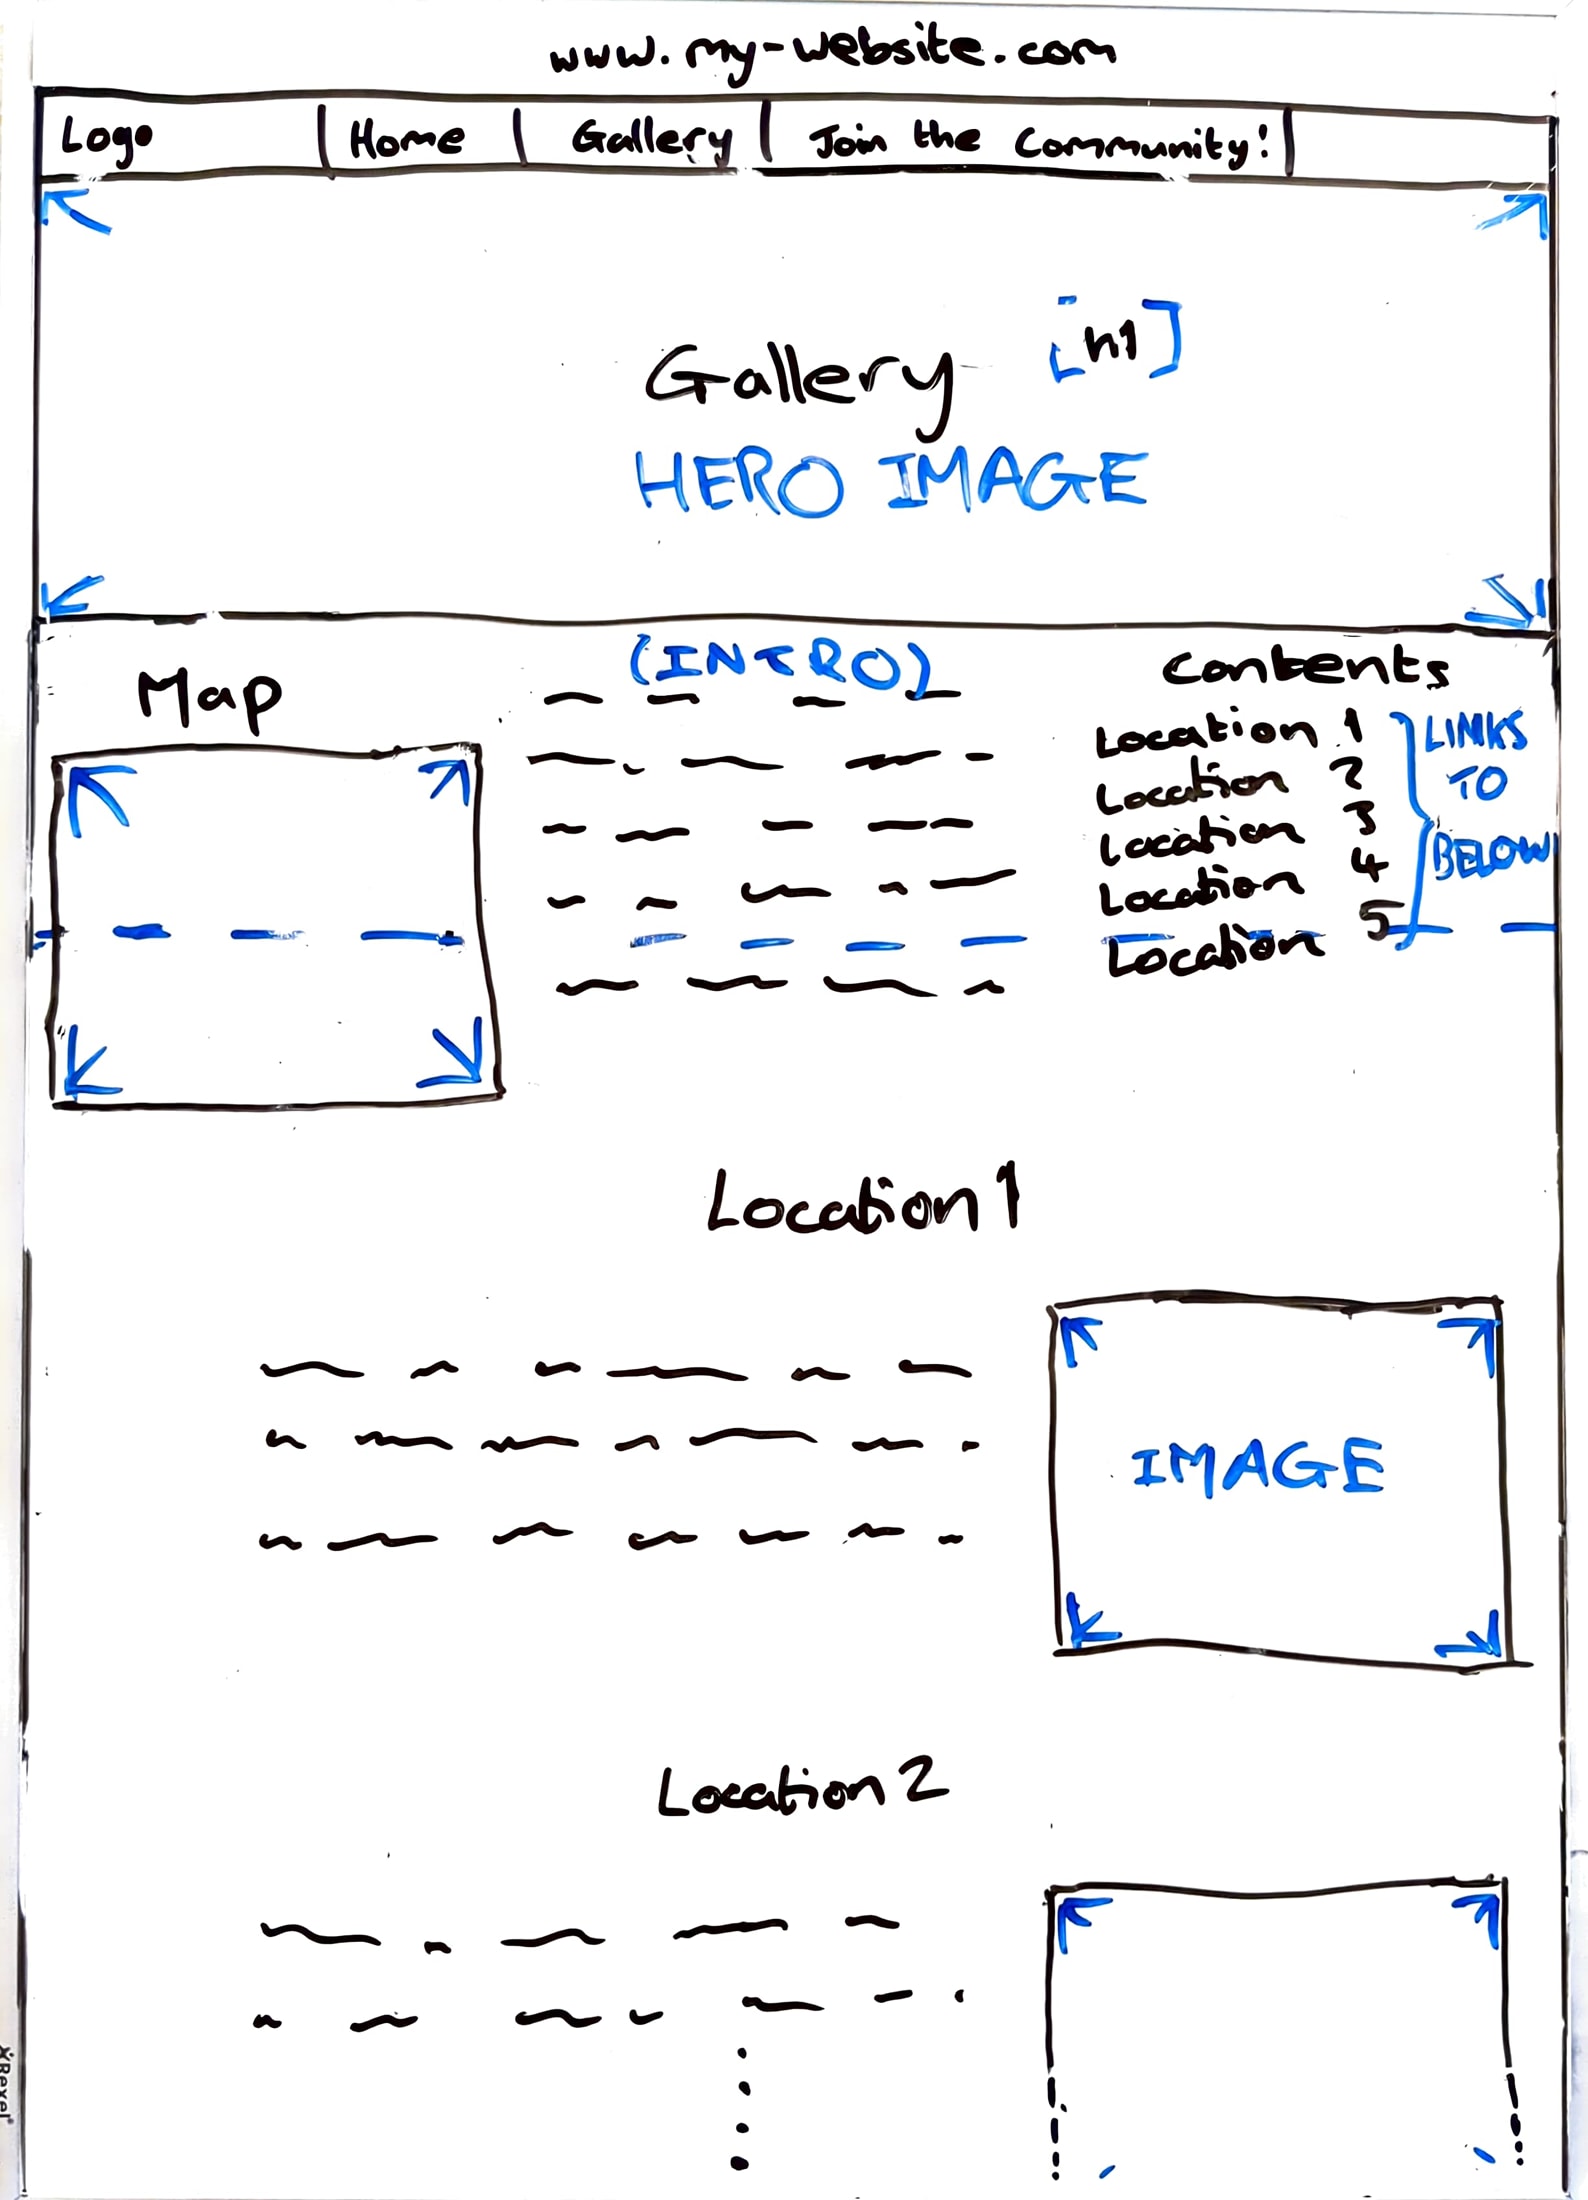 www.my-website.com
Logo Home Gallery Join the Community!
Gallery [h1]
HERO IMAGE
Map
(INTRO)
Contents
Location 1
Location 2
Location 3
Location 4
Location 5
LINKS
TO
BELOW
Location 1
IMAGE
Location 2
Rexel